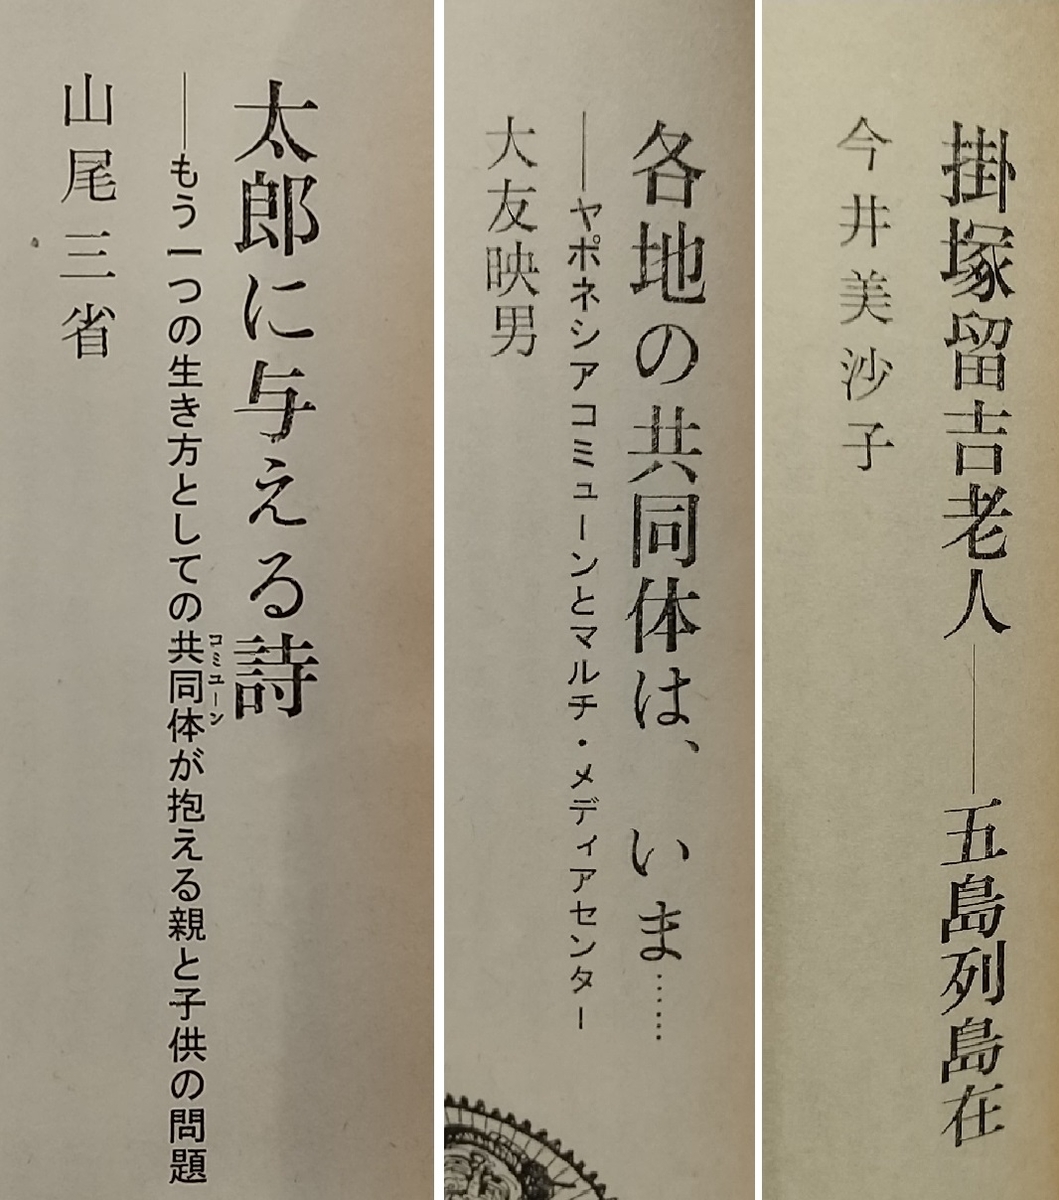 太郎に与える詩
――もう一つの生き方としての共同体が抱える親と子供の問題
コミューン
山尾三省
各地の共同体は、いま……
――ヤポネシアコミューンとマルチ・メディアセンター
大友映男
掛塚留吉老人――五島列島在
今井美沙子